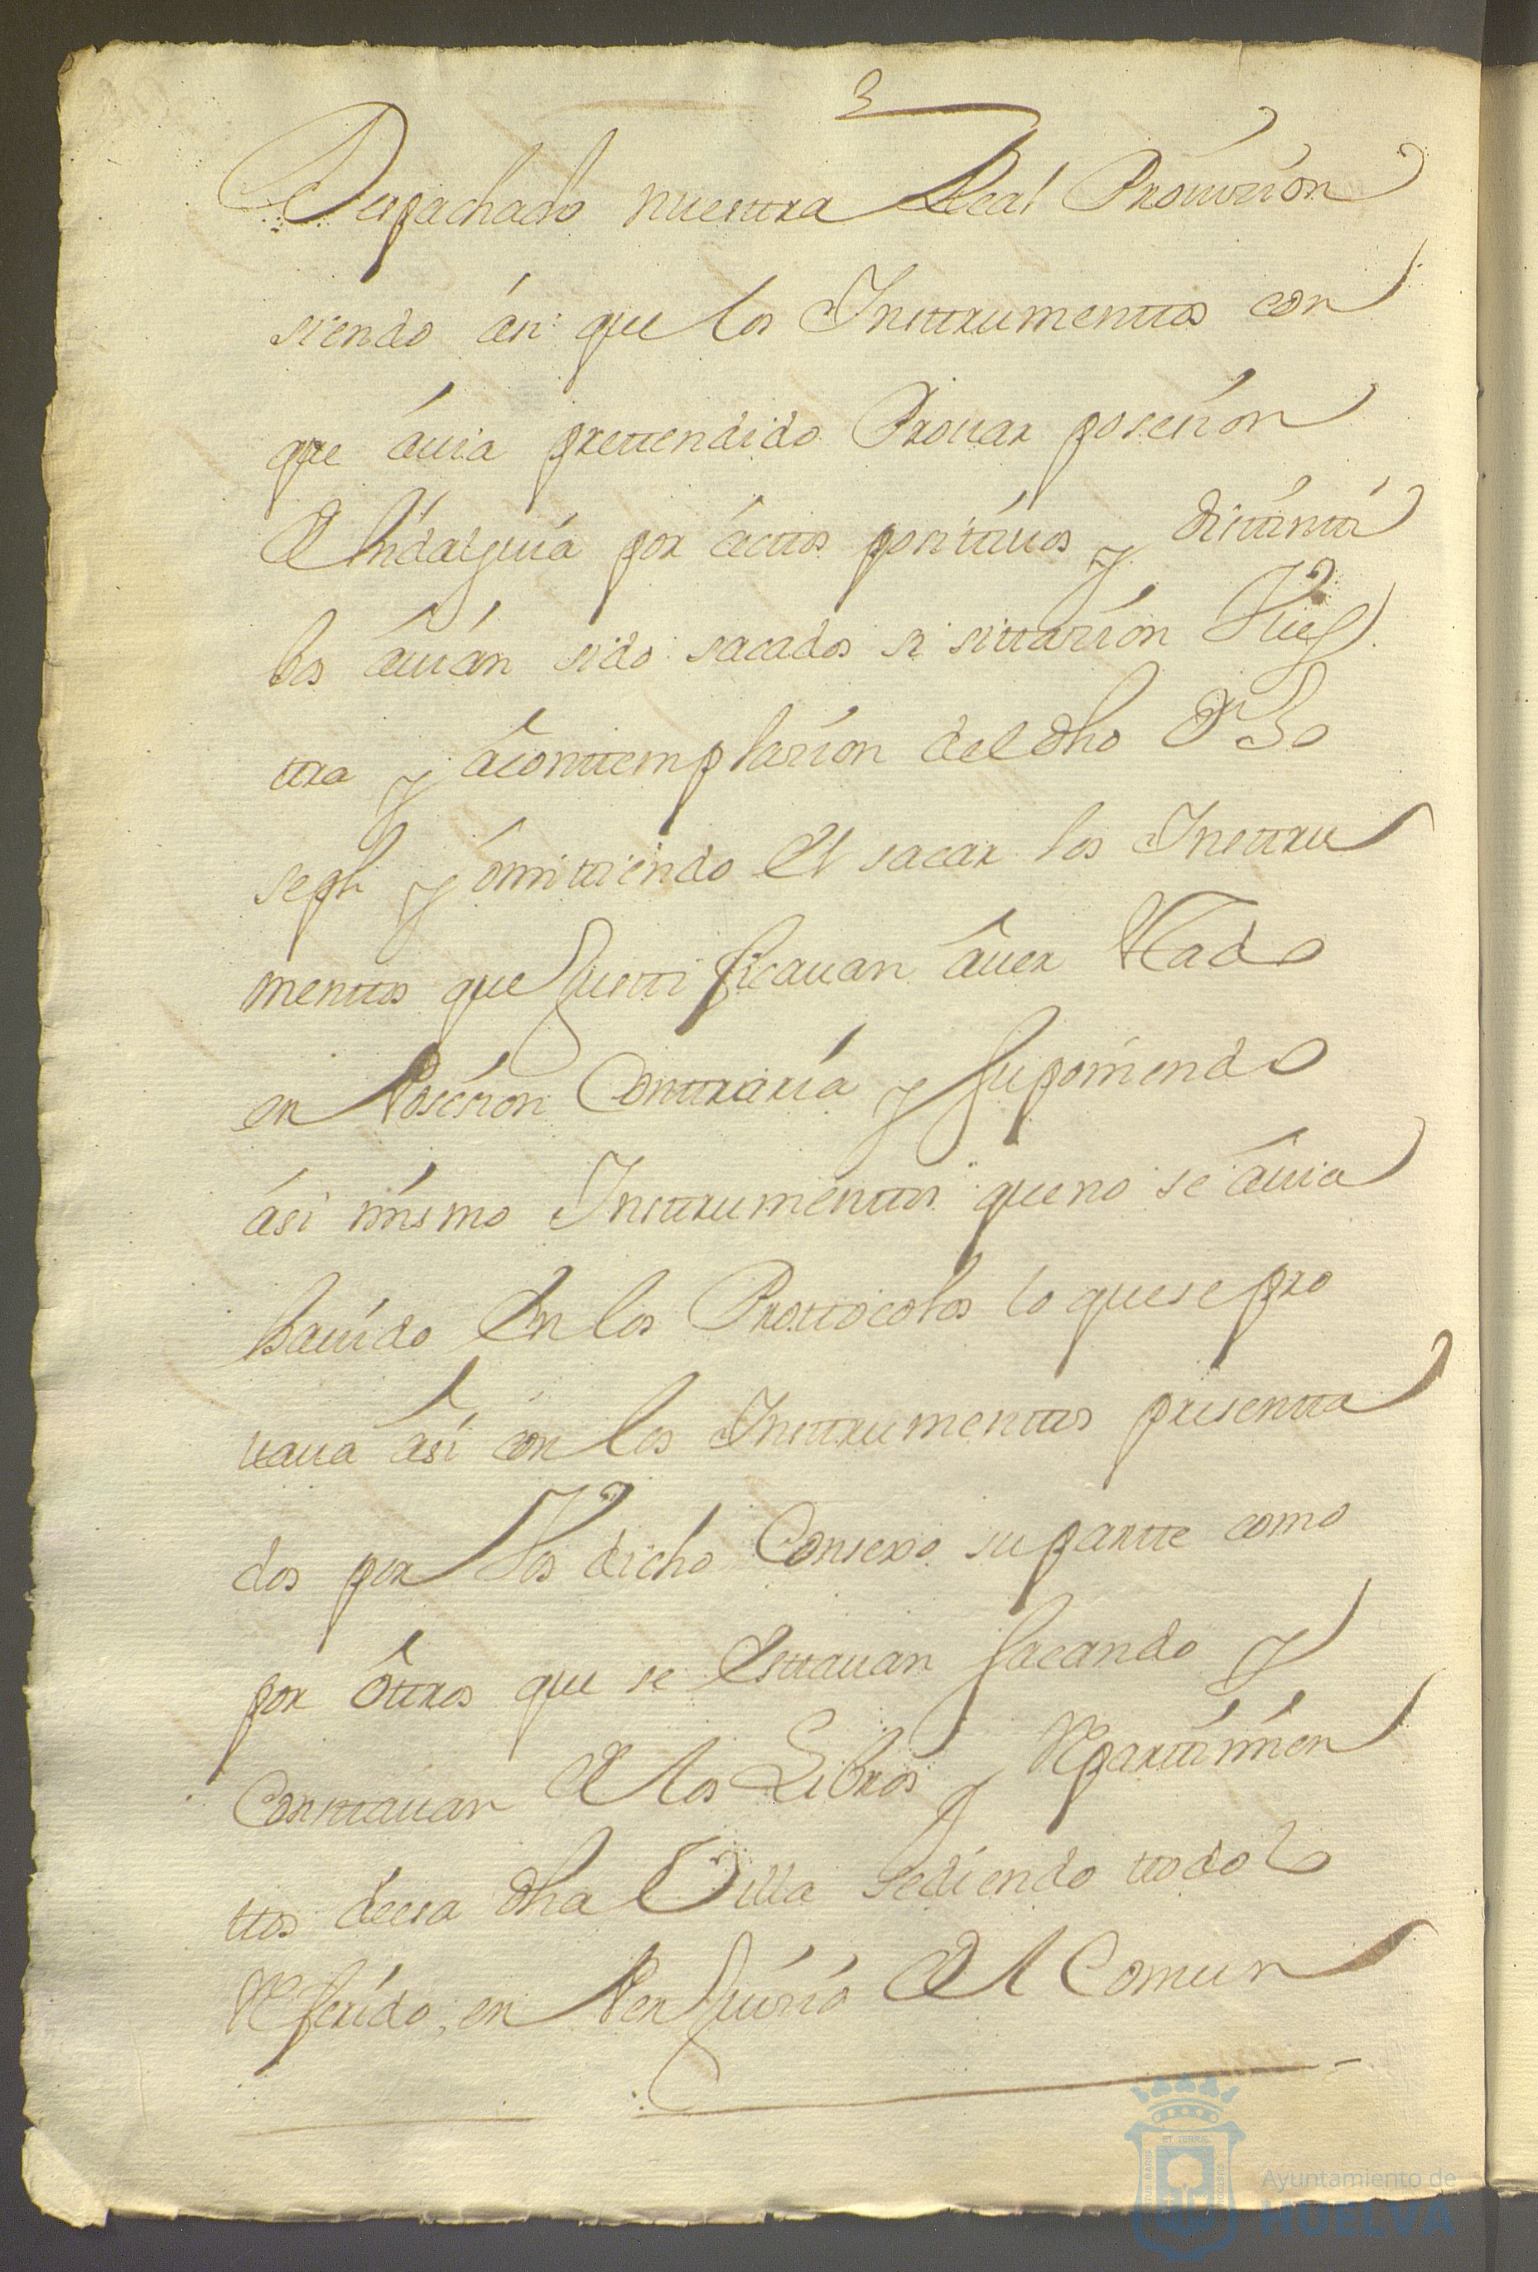 Despachado nuestra Real Provision
siendo ási que los Instrumentos con
que ávia prettendido Provar posesion
de hidalguia por actos positivos y distinta
los avian sido sacados si sittazion Vues
ttra y aconttemplazion del dho Dn Jo
seph y ómittiendo el sacar los Instru
mentos que justtificavan áver estado
en Posesion Conttraria y suponiendo
ási mismo Instrumenttos que no se ávia
havido en los Prottocolos lo que se pro
vava ási con los Instrumenttos presentta
dos por Vos dicho Consexo su partte como
por óttros que se esttavan sacando y
Consttavan de los Libros y Reparttimien
ttos de esa dha Villa sediendo ttodo lo
Referido, en Perjuizio del Comun
Ayuntamiento de
HUELVA